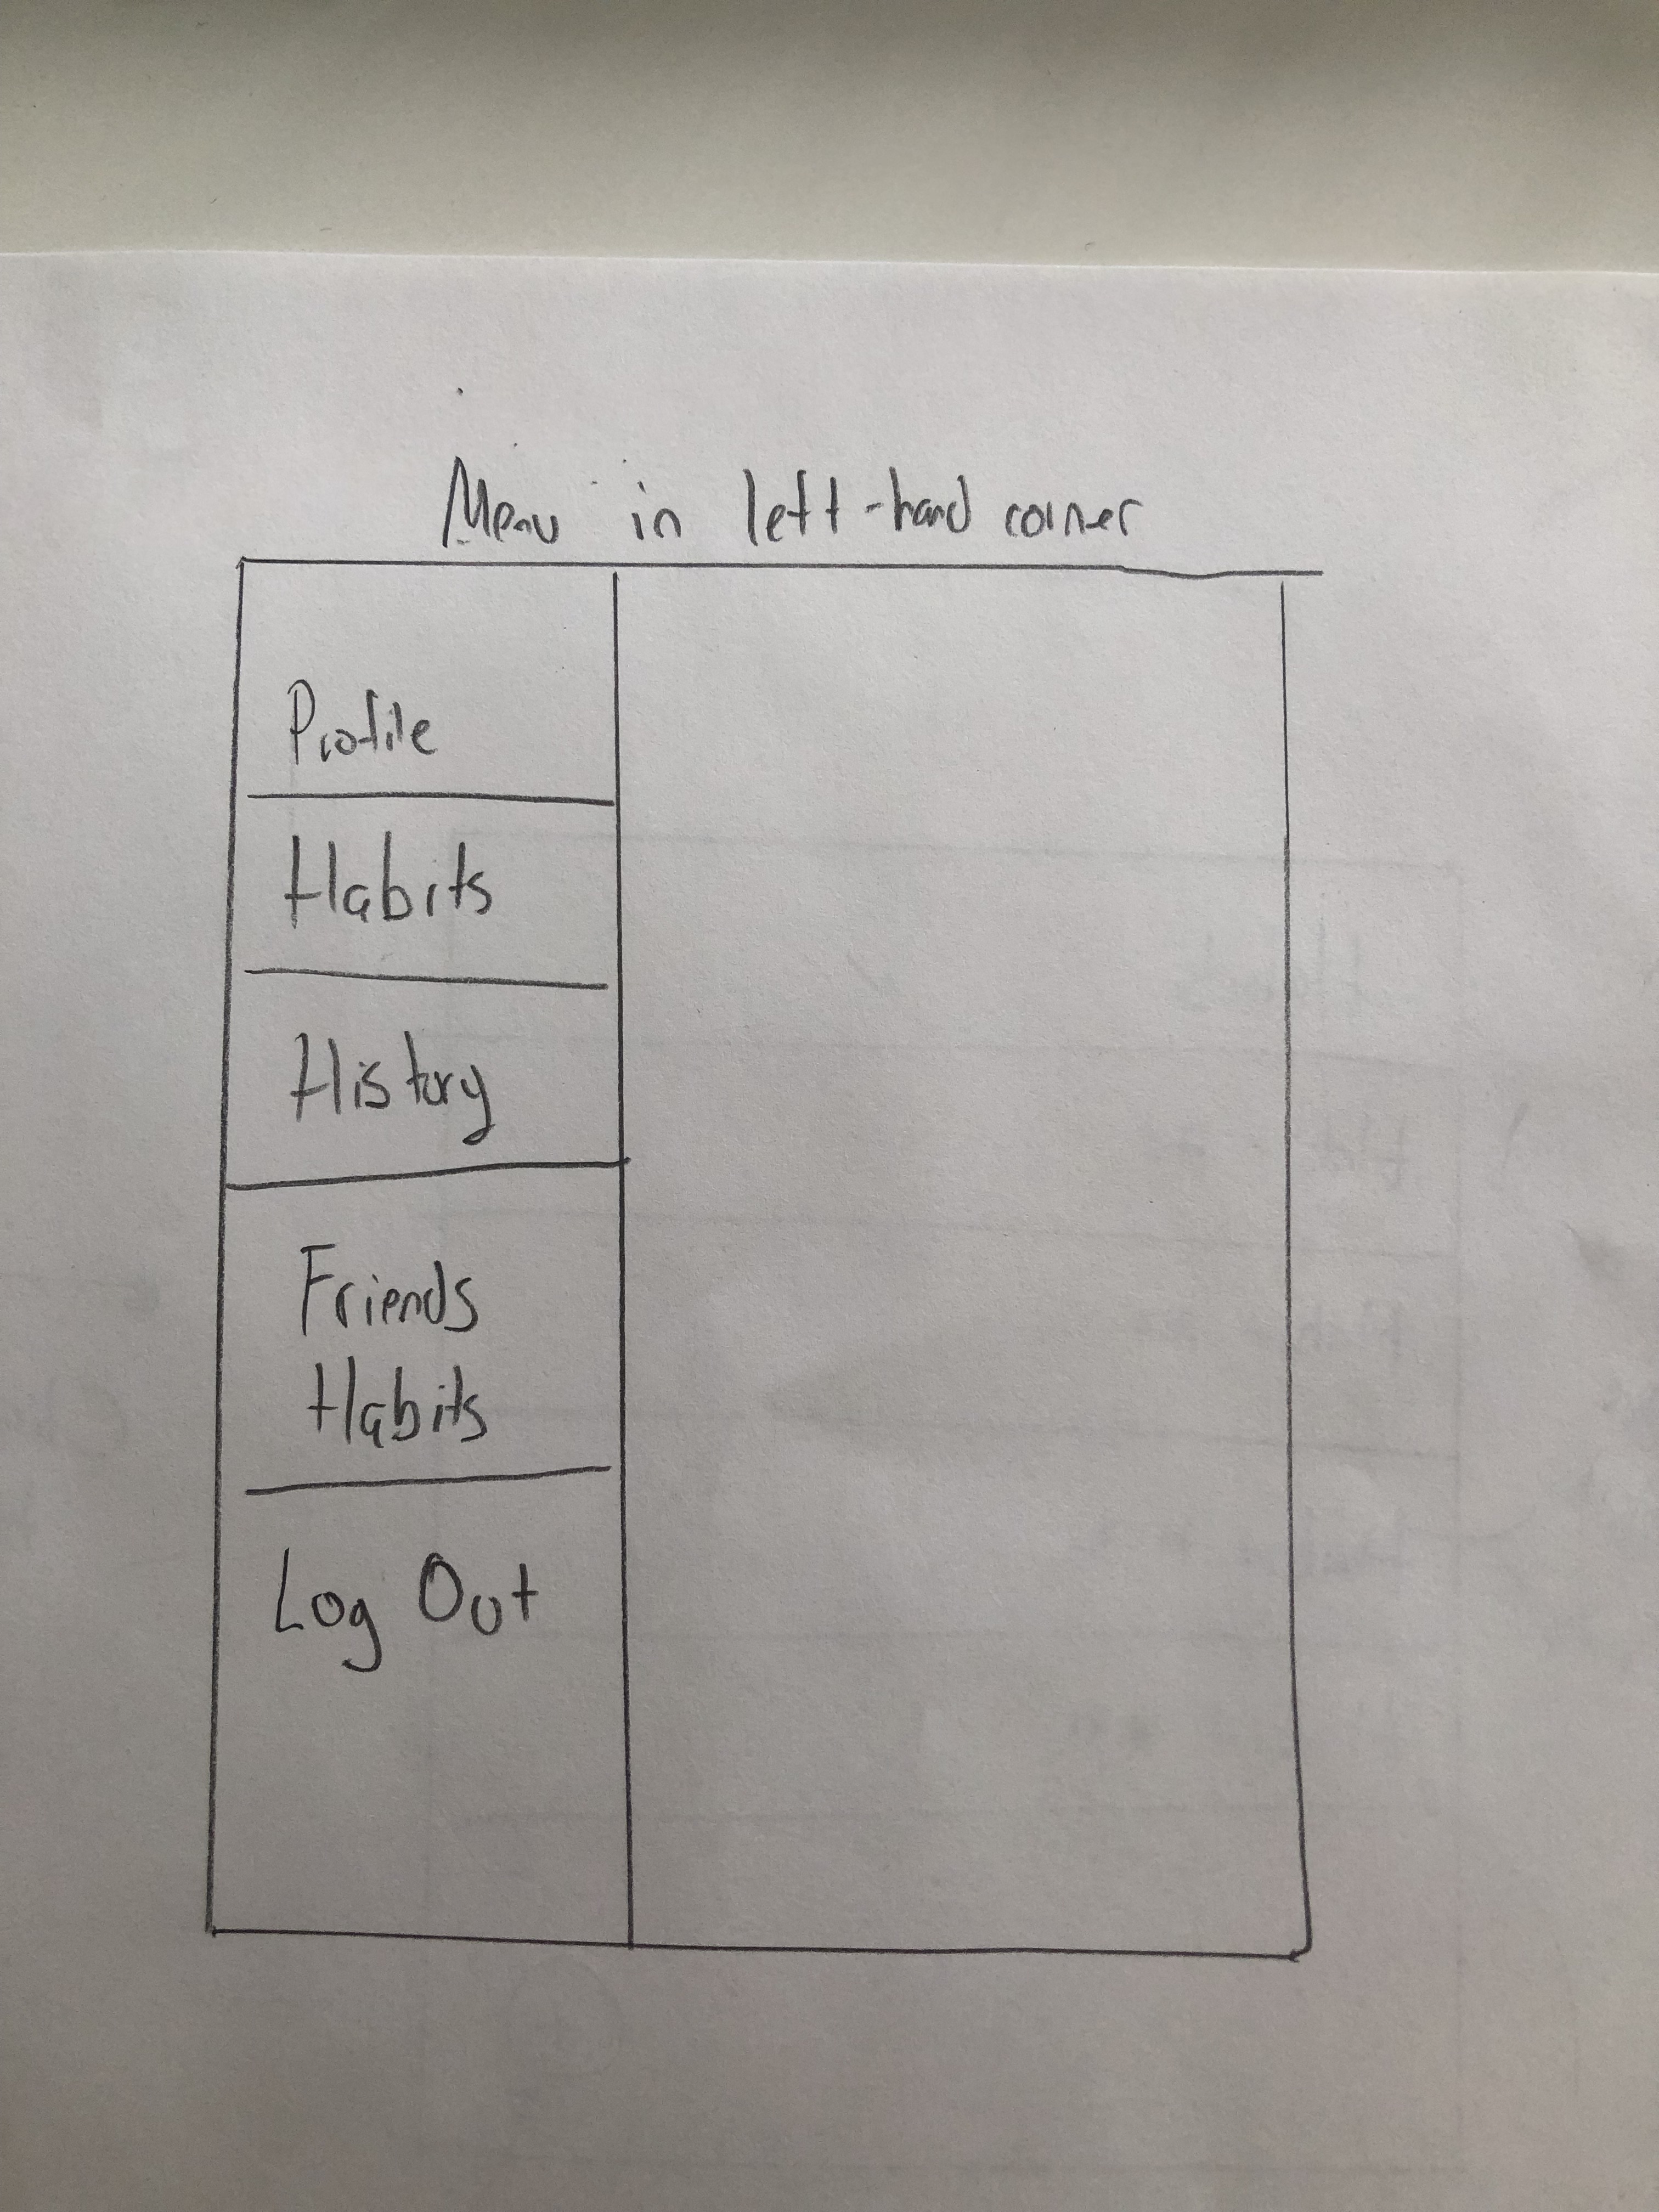 Menu in left-hand corner
Profile
Habits
History
Friends
Habits
Log Out